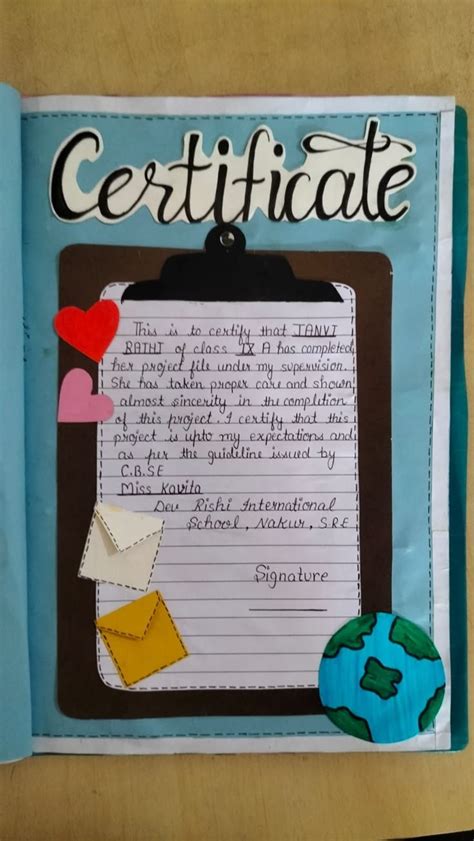 Certificate
This is to certify that TANVI
RATHI of class IX A has completed
her project file under my supervision.
She has taken proper care and shown
almost sincerity in the completion
of this project. I certify that this
project is upto my expectations and
as per the guideline issued by
C.B.SE
Miss Kavita
Dev Rishi International
School, Nakur, S.R.E
Signature